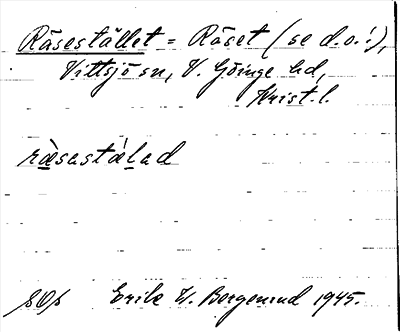 Räsestället = Räset (se d.o.!),
Vittsjö sn, V. Göinge hd,
Krist. l.
ràsastálad
Erik W. Bergmund 1945.